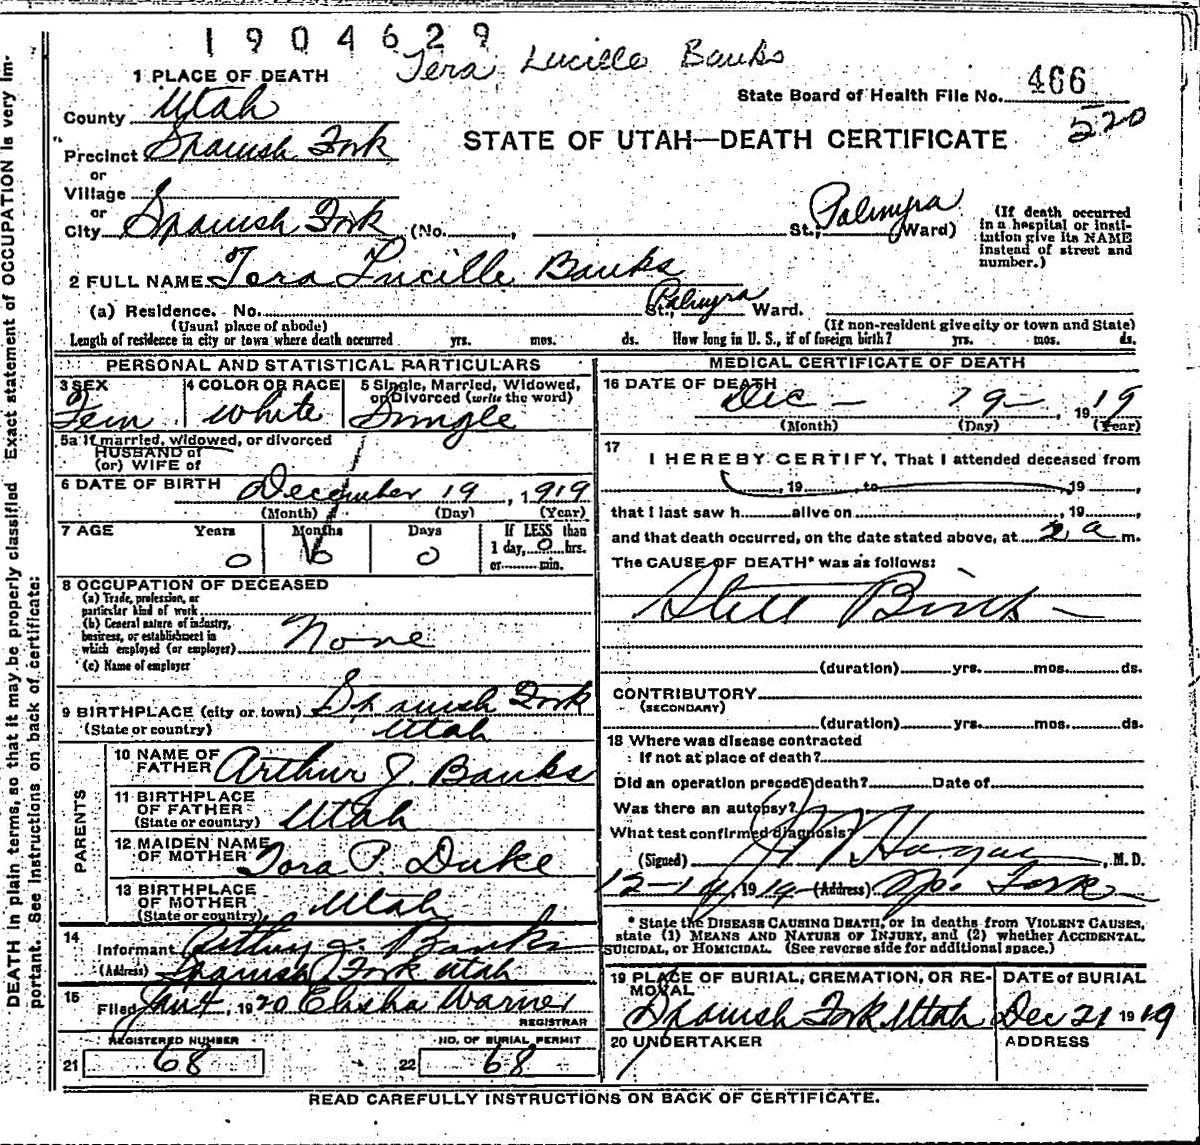 1904629
Tera Lucille Banks
1 PLACE OF DEATH
State Board of Health File No. 466
County Utah
220
STATE OF UTAH—DEATH CERTIFICATE
Precinct Spanish Fork
or
Village
or
City Spanish Fork (No. , St.; Palmyra Ward)
(If death occurred in a hospital or institution give its NAME instead of street and number.)
2 FULL NAME Tora Lucille Banks
(a) Residence. No. St., Palmyra Ward.
(Usual place of abode) (If non-resident give city or town and State)
Length of residence in city or town where death occurred yrs. mos. ds. How long in U. S., if of foreign birth? yrs. mos. ds.
PERSONAL AND STATISTICAL PARTICULARS
3 SEX Fem
4 COLOR OR RACE White
5 Single, Married, Widowed, or Divorced (write the word) Single
5a If married, widowed, or divorced
HUSBAND of
(or) WIFE of
6 DATE OF BIRTH December 19, 1919
(Month) (Day) (Year)
7 AGE Years Months Days If LESS than
0 0 1 day, 0 hrs.
or min.
8 OCCUPATION OF DECEASED
(a) Trade, profession, or
particular kind of work
(b) General nature of industry,
business, or establishment in
which employed (or employer) None
(c) Name of employer
9 BIRTHPLACE (city or town) Spanish Fork
(State or country) Utah
PARENTS
10 NAME OF FATHER Arthur J. Banks
11 BIRTHPLACE OF FATHER (State or country) Utah
12 MAIDEN NAME OF MOTHER Tora P. Duke
13 BIRTHPLACE OF MOTHER (State or country) Utah
14
Informant Arthur J. Banks
(Address) Spanish Fork Utah
15
Filed Jan 4, 1920 Elisha Warner
REGISTRAR
REGISTERED NUMBER
21 68
NO. OF BURIAL PERMIT
22 68
MEDICAL CERTIFICATE OF DEATH
16 DATE OF DEATH
Dec — 19 —, 1919
(Month) (Day) (Year)
17
I HEREBY CERTIFY, That I attended deceased from
, 19 , to , 19 ,
that I last saw h alive on , 19 ,
and that death occurred, on the date stated above, at 2 a m.
The CAUSE OF DEATH* was as follows:
Still Birth —
(duration) yrs. mos. ds.
CONTRIBUTORY
(SECONDARY)
(duration) yrs. mos. ds.
18 Where was disease contracted
If not at place of death?
Did an operation precede death? Date of
Was there an autopsy?
What test confirmed diagnosis?
(Signed) , M. D.
12-19, 1919 (Address) Sp. Fork
*State the DISEASE CAUSING DEATH, or in deaths from VIOLENT CAUSES,
state (1) MEANS AND NATURE OF INJURY, and (2) whether ACCIDENTAL,
SUICIDAL, or HOMICIDAL. (See reverse side for additional space.)
19 PLACE OF BURIAL, CREMATION, OR REMOVAL
Spanish Fork Utah
DATE of BURIAL
Dec 21 1919
20 UNDERTAKER
ADDRESS
READ CAREFULLY INSTRUCTIONS ON BACK OF CERTIFICATE.
DEATH in plain terms, so that it may be properly classified Exact statement of OCCUPATION is very im-
portant. See instructions on back of certificate: